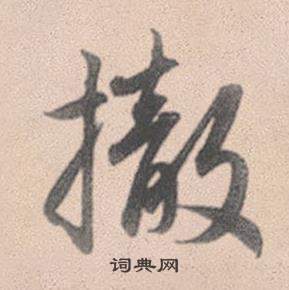 撤
词典网